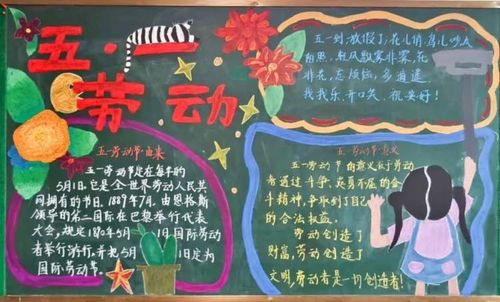 五·一
劳动
五一到,放假了;花儿俏,鸟儿吵
相思,轻风飘雾非雾,花
非花,忘烦恼,多逍遥,
我我乐,开口笑,祝安好!
五一劳动节·由来
五一劳动节定在每年的
5月1日。它是全世界劳动人民共
同拥有的节日。1889年7月,由恩格斯
领导的第二国际在巴黎举行代表
大会,规定1890年5月1日国际劳动
者举行游行,并把5月1日定为
国际劳动节。
五一劳动节·意义
五一劳动节的意义在于劳动
者通过斗争、英勇不屈的
斗精神,争取到了自己
的合法权益。
劳动创造了
财富,劳动创造了
文明,劳动者是一切创造者!